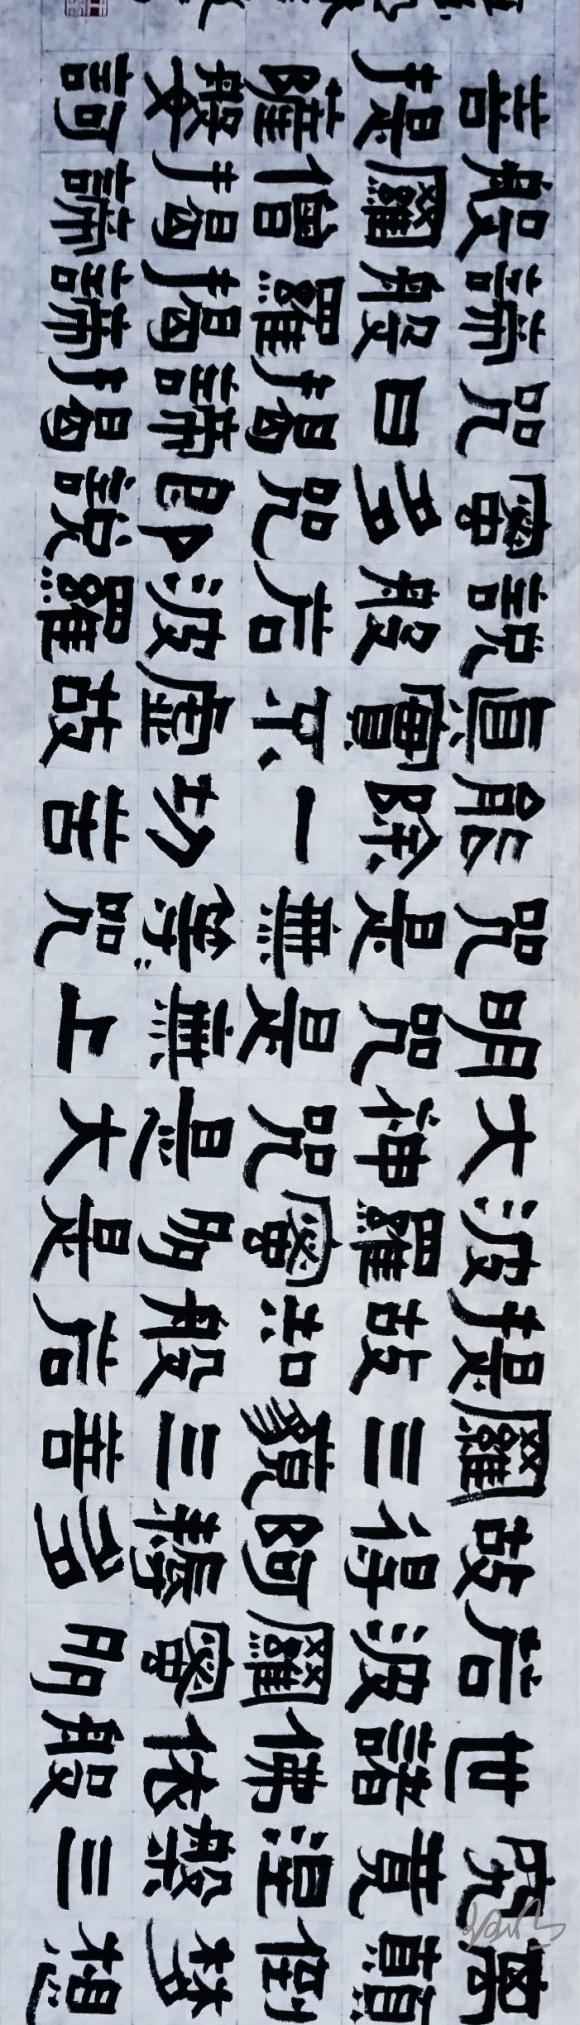 離顛倒夢想
究竟涅槃三
世諸佛依般
若波羅蜜多
故得阿耨多
羅三藐三菩
提故知般若
波羅蜜多是
大神咒是大
明咒是無上
咒是無等々咒
能除一切苦
真實不虛故
說般若波羅
蜜多咒即說
咒曰揭諦揭
諦般羅揭諦
般羅僧揭諦
菩提薩婆訶